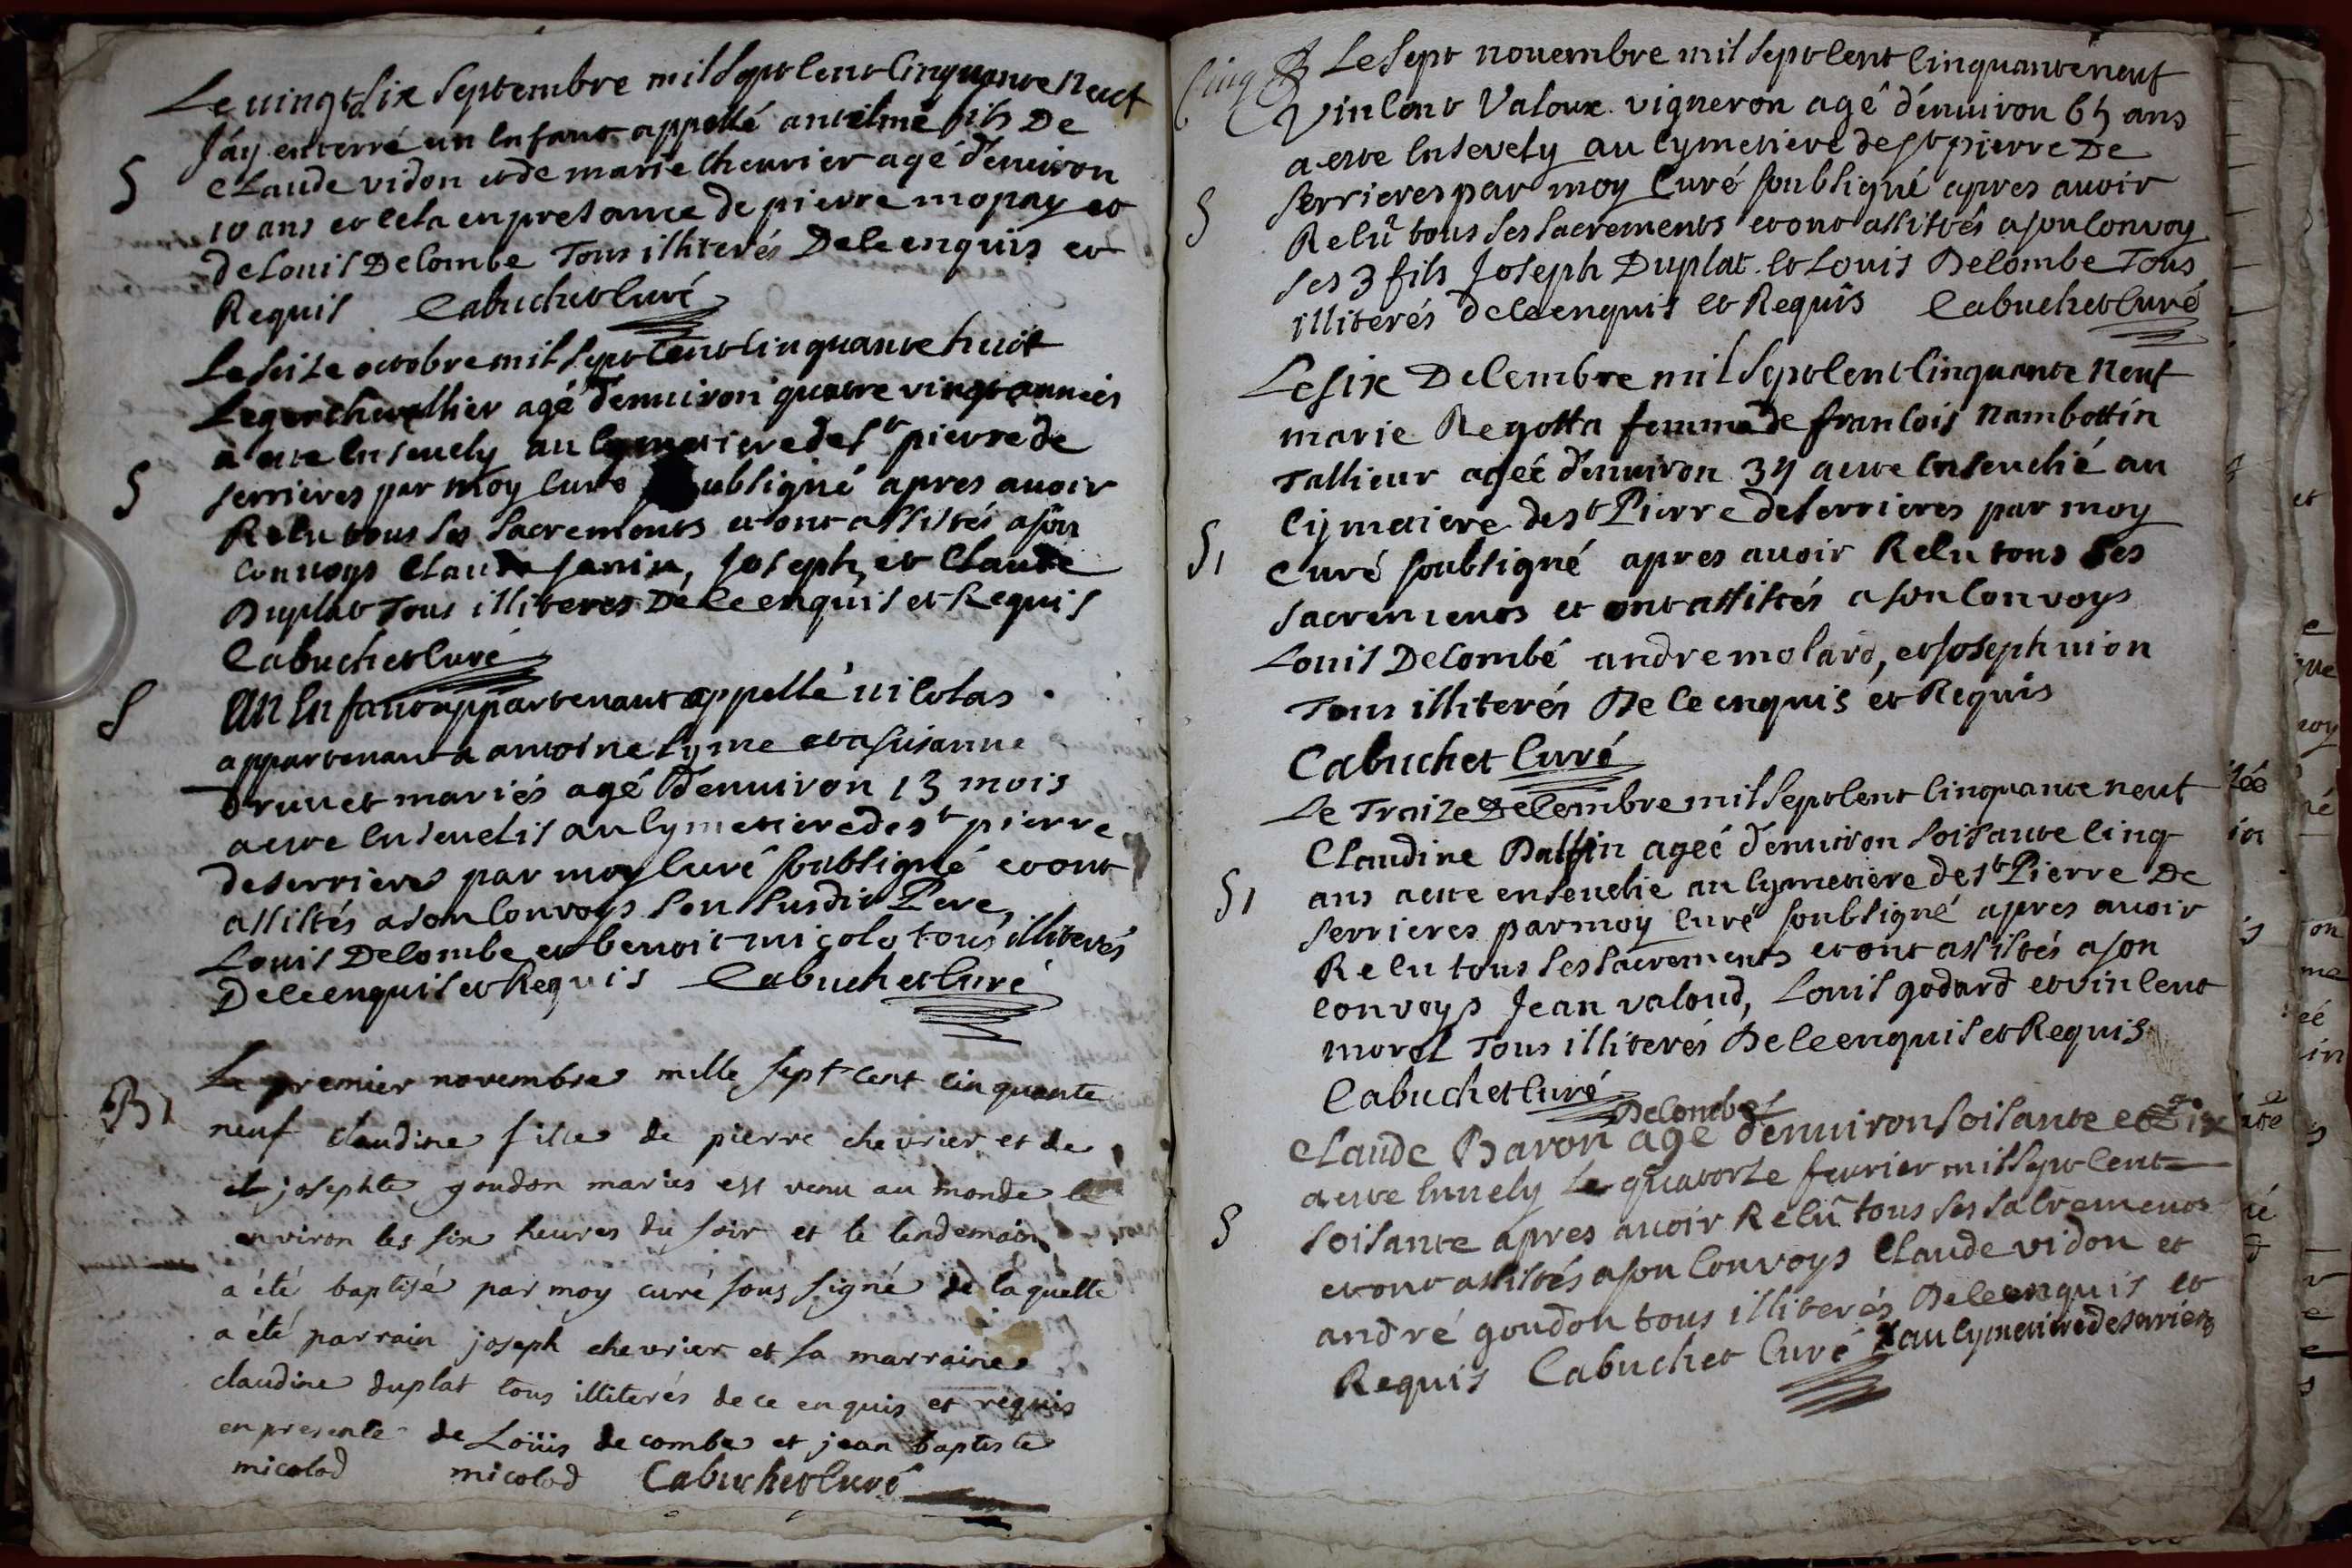 Le vingt Six Septembre mil Sept Cent Cinquante Neuf
J'áy enterré un Enfant appellé antelme fils De
S
Claude vidon et de marie Chevrier agé d'environ
10 ans et cela en presance de pierre mopay et
de Louis Decombe Tous illiterés De ce enquis et
Requis Cabuchet Curé
Le seize octobre mil Sept Cent Cinquante huit
Leger chevallier agé d'environ quatre vingt années
a ette Ensevely au Cymetiere de St pierre de
S
serrieres par moy Curé soubsigné apres avoir
Recu tous ses Sacrements et ont assistés a son
Convoys Claude Janin, Joseph, et Claude
Duplat Tous illiteres De ce enquis et Requis
Cabuchet Curé
S
un Enfant appartenant appellé nicolas
appartenant a antoine Cyme et a susanne
Druvet mariés agé d'environ 13 mois
a ette Ensevelis au Cymetiere de st pierre
de serrieres par moy Curé soubsigné et ont
assistés a son Convoys son susdit Pere,
Louis Decombe et benoit micolo tous illiterés
De ce enquis et Requis Cabuchet Curé
Le premier novembre mille sept cent cinquante
B1
neuf claudine fille de pierre chevrier et de
et josephte goudon maries est venu au monde le
environ les six heures du soir et le lendemain
a été baptisé par moy curé sous signé de laquelle
a été parrain joseph chevrier et sa marraine
claudine duplat tous illiterés de ce enquis et requis
en presente de Loüis de combe et jean baptiste
micolod micolod Cabuchet Curé
Cinq Le Sept novembre mil Sept Cent Cinquante neuf
Vincent Valoux vigneron agé d'environ 65 ans
a ette Ensevely au Cymetiere de St pierre De
S
serrieres par moy Curé soubsigné apres avoir
Relû tous ses sacrements et ont assistés a son Convoy
ses 3 fils Joseph Duplat et Louis Decombe Tous
illiterés de ce enquis et Requis Cabuchet Curé
Le six Decembre mil Sept Cent Cinquante Neuf
marie Regotta femme de francois nambottin
Tallieur ageé d'environ 34 a ette Ensevelié au
Cijmetiere de st Pierre de serrieres par moy
S1
Curé soubsigné apres avoir Recu tous ses
sacrements et ont assistés a son Convoys
Louis Decombé andre molard, et Joseph vion
Tous illiterés De ce enquis et Requis
Cabuchet Curé
Le Traize decembre mil Sept Cent Cinquante neuf
Claudine Dalfin ageé d'environ soisante cinq
S1
ans a ette ensevelie au Cymetiere de st Pierre De
serrieres par moy curé soubsigné apres avoir
Relu tous ses sacrements et ont assistés a son
convoys Jean valoud, Louis godard et vincent
morel Tous illiterés De ce enquis et Requis
Cabuchet Curé
Decombes
Claude Baron agé d'environ soisante et dix
a ette Envely Le quatorse fevrier mil Sept Cent
S
soisante apres avoir Relû tous ses sacrements
et ont assistés a son Convoys Claude vidon et
andré goudon tous illiterés De ce enquis et
Requis Cabuchet Curé X au Cymetiere de serrieres